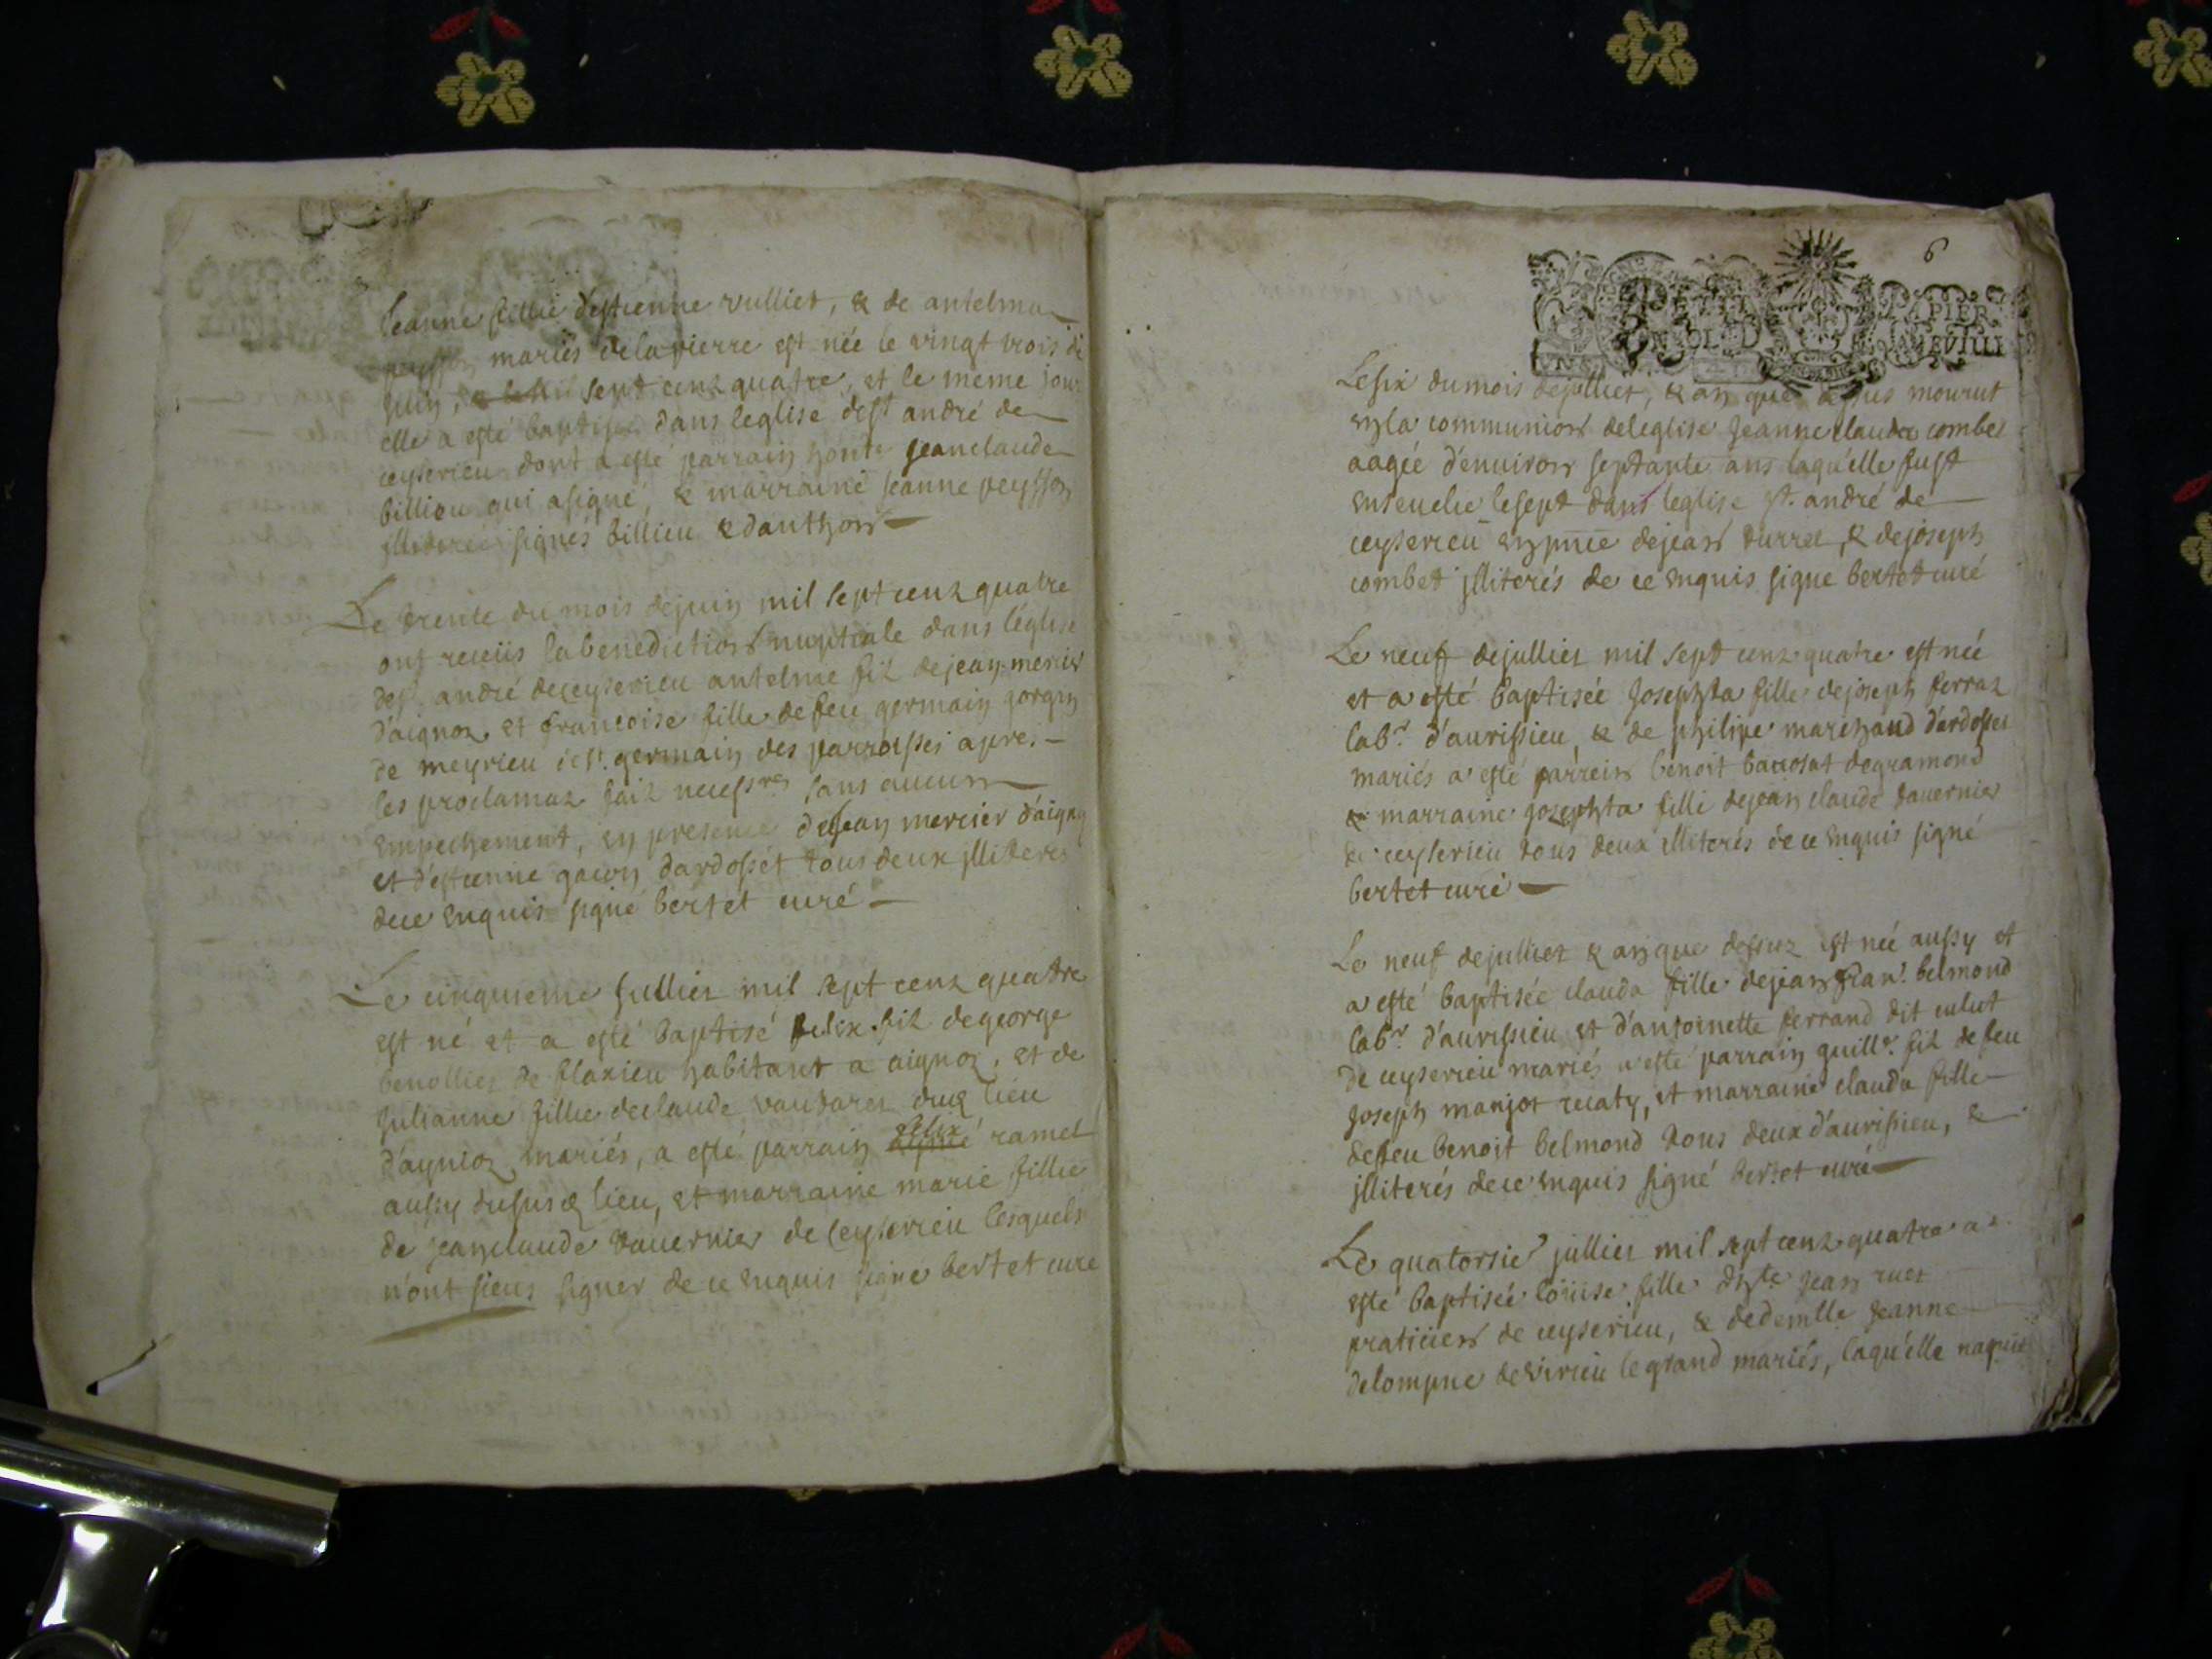 Jeanne fillie d'estienne vulliet, & de antelma
peysson mariés dela pierre est née le vingt trois de
juin, sept cenz quatre, et le meme jour
elle a esté baptisée dans leglise de st andré de
ceyserieu dont a esté parrain honte Jeanclaude
billieu qui a signé, & marraine Jeanne peysson
jlliterée signés billieu & dauthon
Le trente du mois de juin mil sept cenz quatre
ont receüs la benediction nuptiale dans l'église
de st. andré de ceyserieu antelme fil de jean mercier
d'aignoz, et francoise fille de feu germain gorgin
de meyrieu st. germain des parroisses apre.
les proclamaz fait necessres sans aucun
empechement, en presence de jean mercier d'aignoz
et d'estienne gacon dardosset tous deux jlliteres
de ce enquis signé bertet curé
Le cinquieme Jullier mil sept cenz quatre
est né et a esté baptisé felix fil de george
benollier de flaxieu habitant a aignoz, et de
Julianne fillie de claude vaudarez dud lieu
d'aynioz mariés, a esté parrain felix ramel
aussy du susd lieu, et marraine marie fillie
de jeanclaude tavernier de Ceyserieu lesquels
n'ont sceus signer de ce enquis signé bertet curé
6
PAPIER
Le six du mois de jullier, & an que dessus mourut
en la communion de leglise Jeanne clauda combet
aagée d'environ septante ans laqu'elle fust
ensevelie le sept dans leglise st. andré de
ceyserieu en pnce de jean durret, & de joseph
combet jlliterés de ce enquis signé bertet curé
Le neuf de jullier mil sept cenz quatre est née
et a esté baptisée Josephta fille de joseph ferraz
labr. d'aurissieu, & de philipe marchand d'ardosset
mariés a esté parrein benoit de gramond
& marraine josephta fille de jean claude tavernier
de ceyserieu tous deux illiterés de ce enquis signé
bertet curé
Le neuf de jullier & an que dessuz est née aussy et
a esté baptisée clauda fille de jean fran. belmond
labr. d'aurissieu et d'antoinette ferrand dit culut
de ceyserieu mariés a esté parrain guille. fil de feu
Joseph manjot recaty, et marraine clauda fille
de feu benoit belmond tous deux d'aurissieu, &
jlliterés de ce enquis signé bertet curé
Le quatorsie jullier mil sept cenz quatre a
esté baptisée loüise fille d'hte jean ruet
praticien de ceyserieu, & de demlle Jeanne
delompne de virieu le grand mariés, laqu'elle naquit